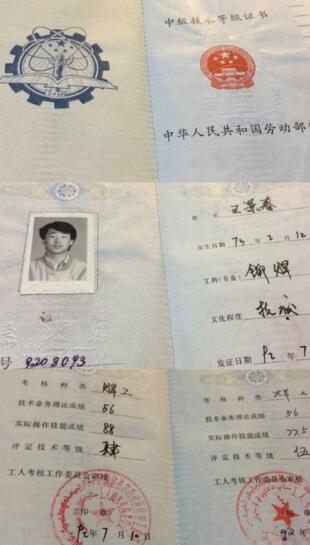 中级技术等级证书
中华人民共和国劳动部
姓名 王景春
出生日期 73年3月12
工种(专业) 铆焊
文化程度 技
发证日期 92年7
号 9208093
考核种类 焊工
技术业务理论成绩 56
实际操作技能成绩 88
评定技术等级 肆
工人考核工作委员会审核
印章
92年7月10日
考核种类
技术业务理论成绩 56
实际操作技能成绩 77.5
评定技术等级 伍
工人考核工作委员会审核
印章
92年